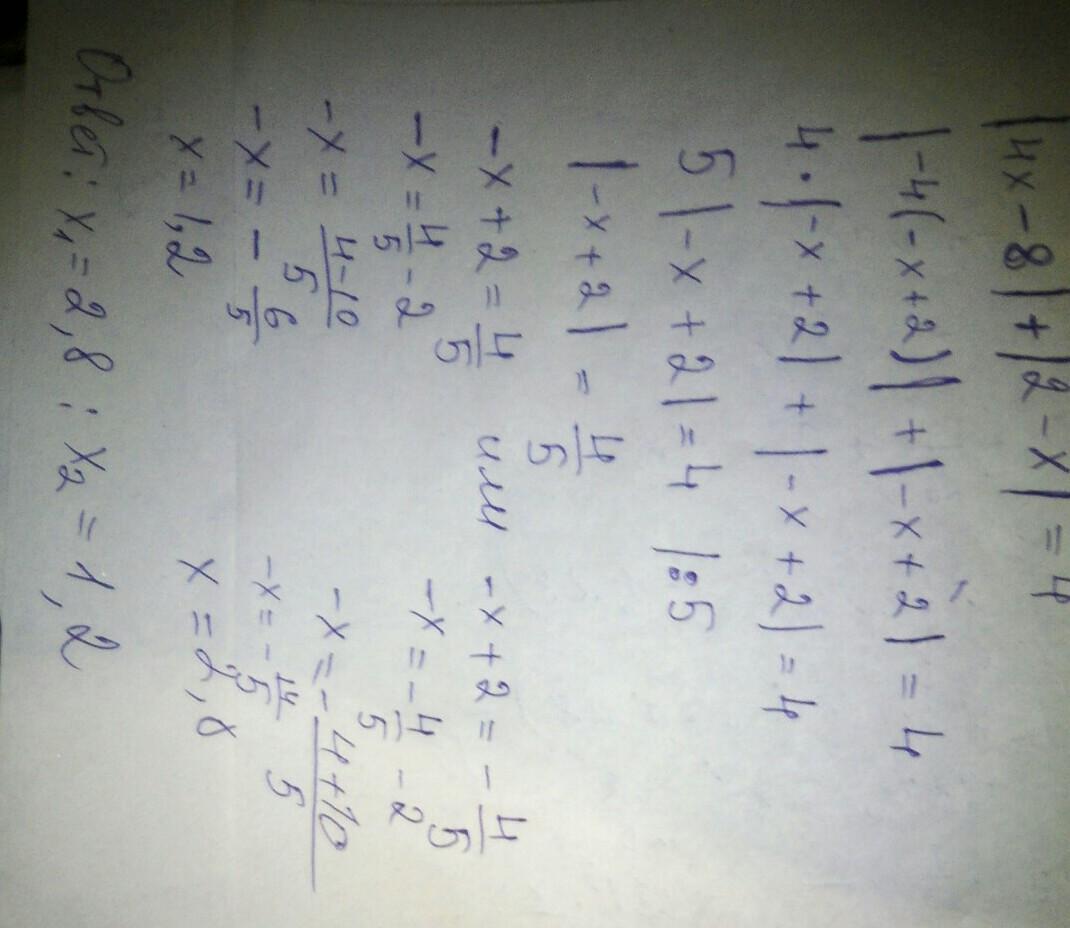 |4x - 8| + |2 - x| = 4
|-4(-x+2)| + |-x+2| = 4
4 · |-x+2| + |-x+2| = 4
5 |-x+2| = 4 |:5
|-x+2| = 4/5
-x+2 = 4/5 или -x+2 = - 4/5
-x = 4/5 - 2 -x = - 4/5 - 2
-x = 4-10/5 -x = - 4+10/5
-x = - 6/5 -x = - 14/5
x = 1,2 x = 2,8
Ответ: x₁ = 2,8 ; x₂ = 1,2